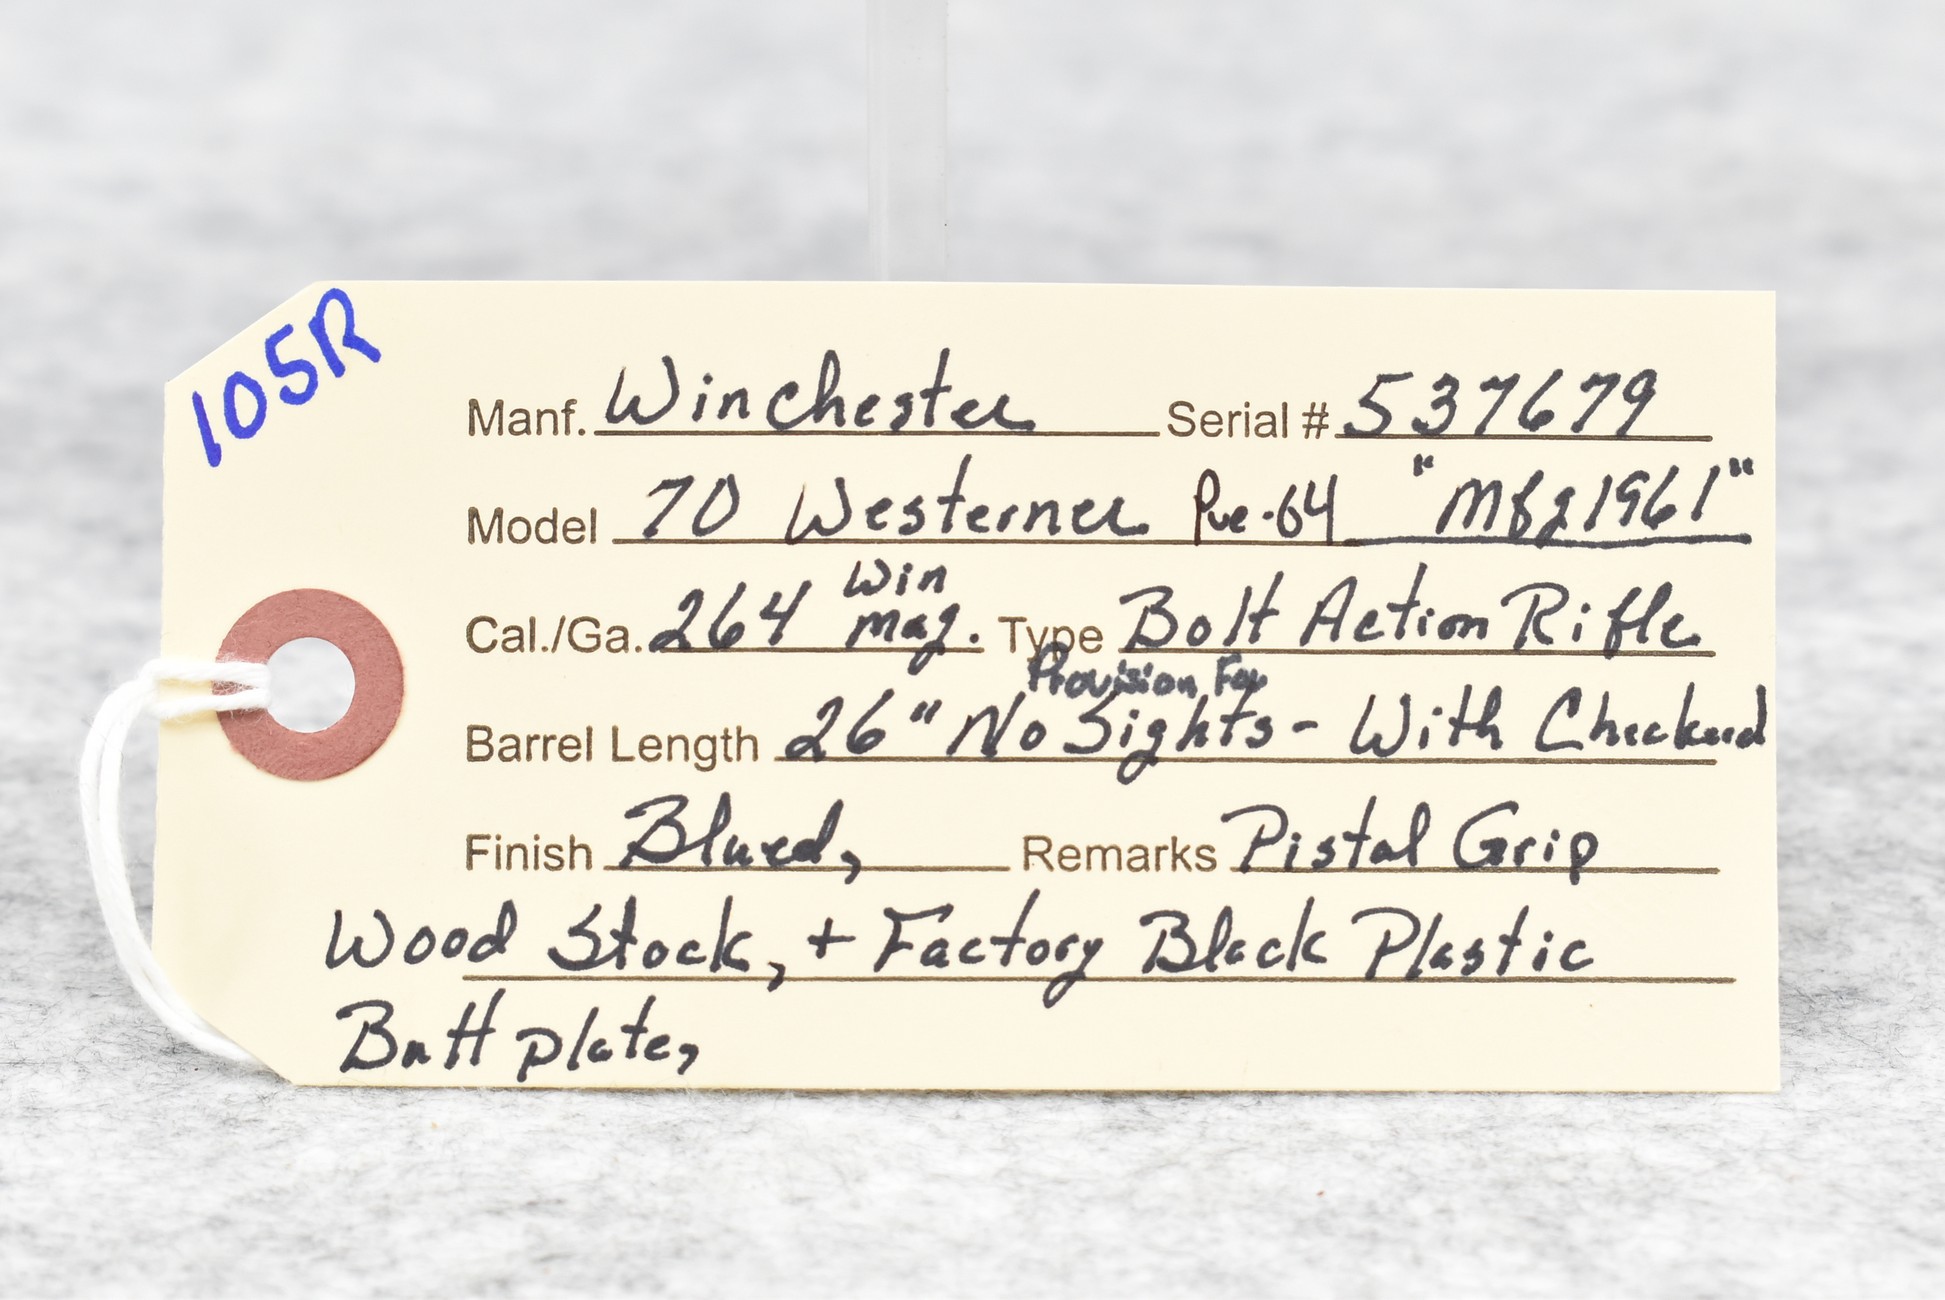 105R
Manf. Winchester Serial # 537679
Model 70 Westerner Pre-64 "Mfg 1961"
Cal./Ga. 264 Win Mag. Type Bolt Action Rifle
Provision For
Barrel Length 26" No Sights - With Checkered
Finish Blued, Remarks Pistal Grip
Wood Stock, + Factory Black Plastic
Butt plate,